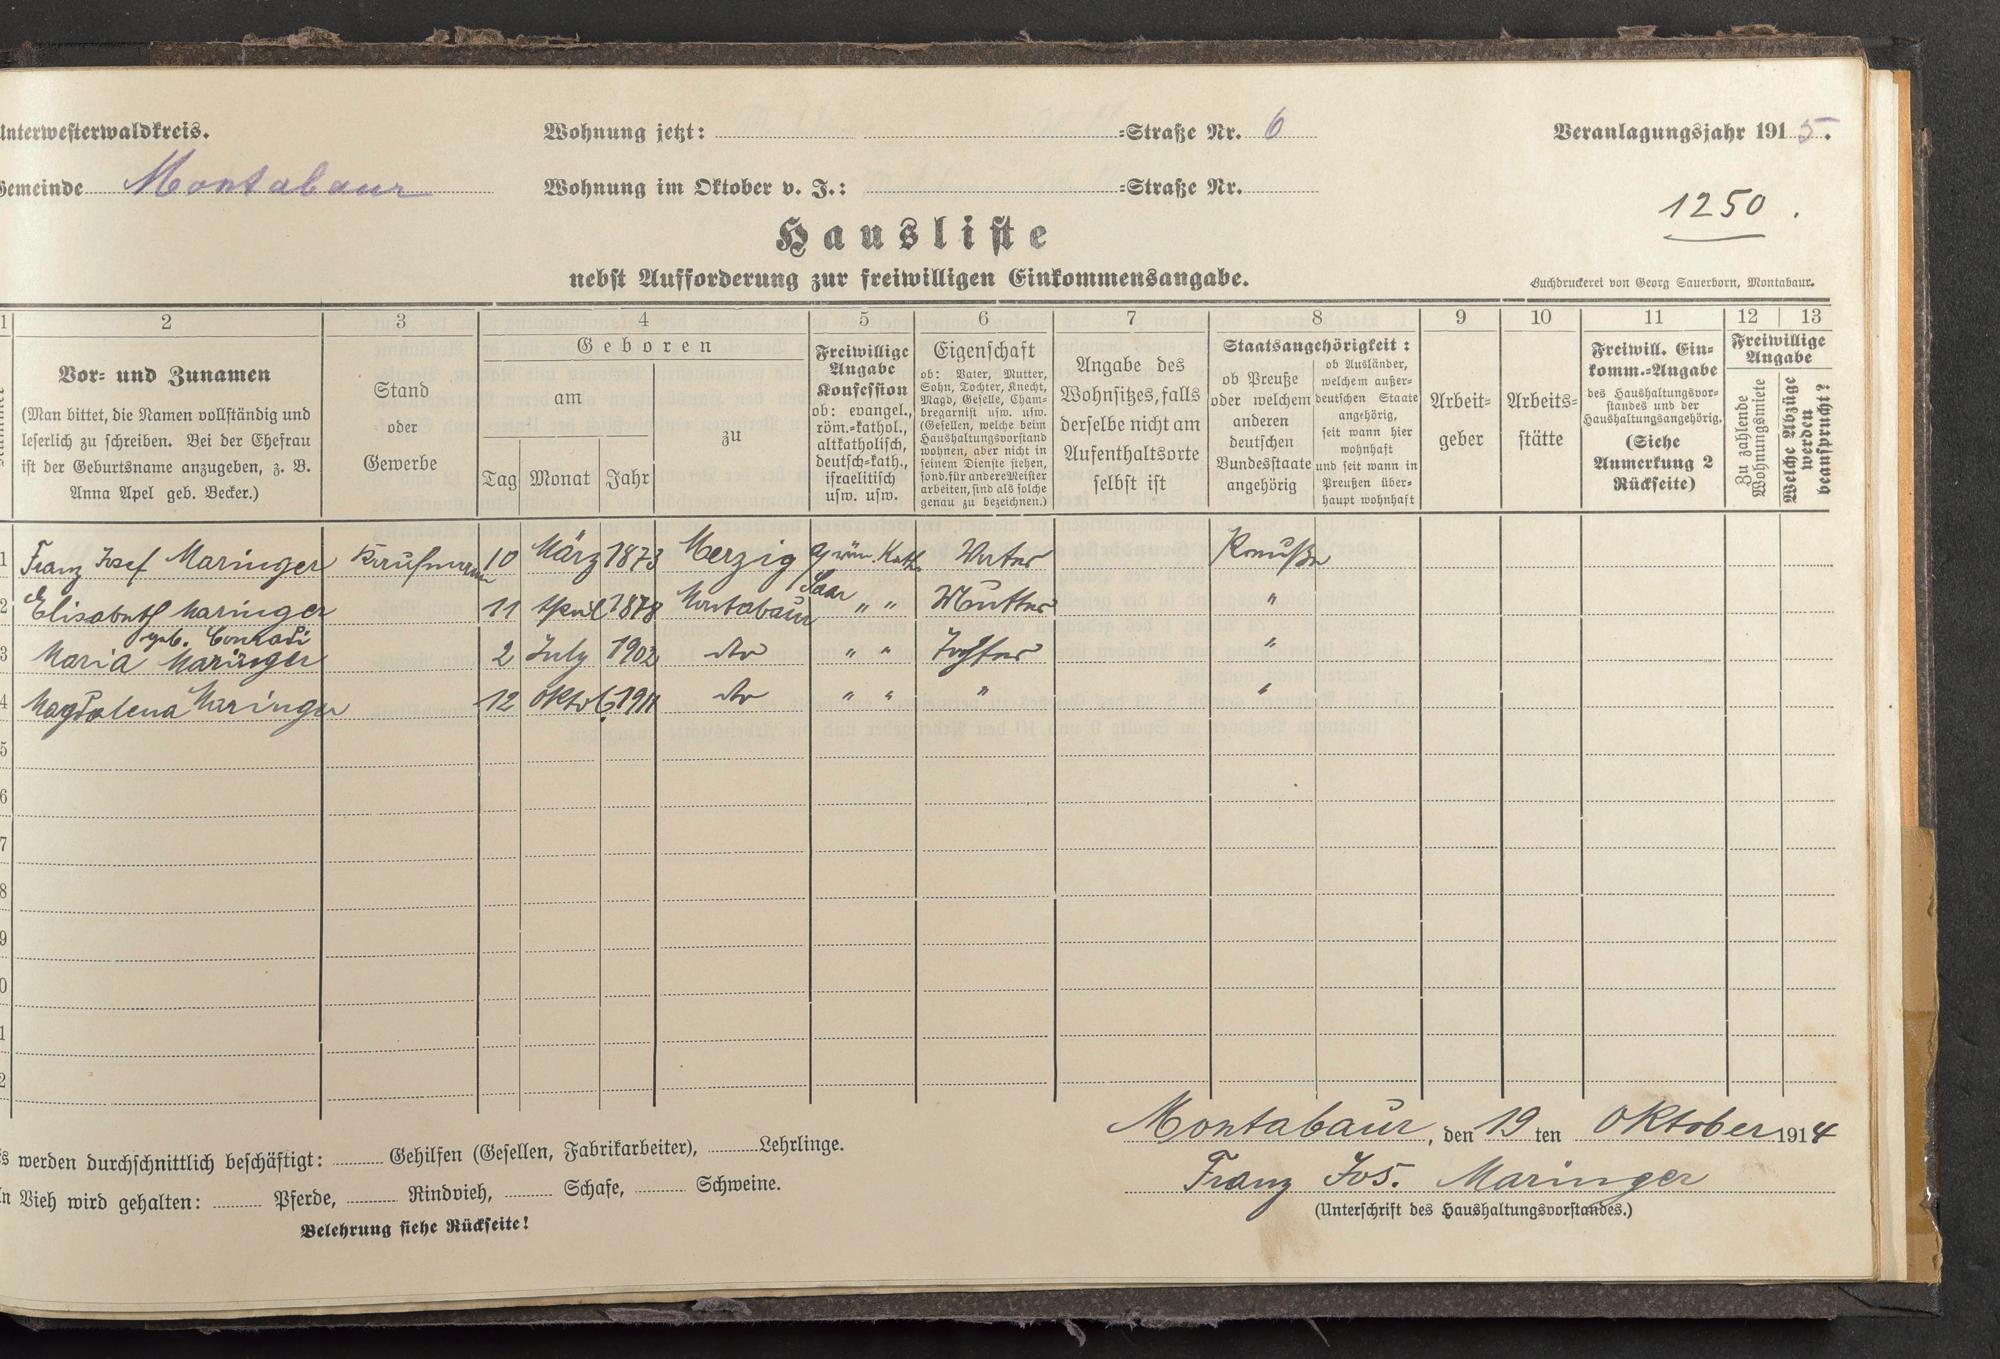 Unterwesterwaldkreis.
Wohnung jetzt: -Straße Nr. 6
Veranlagungsjahr 1915.
Gemeinde Montabaur
Wohnung im Oktober v. J.: -Straße Nr.
1250.
Hausliste
nebst Aufforderung zur freiwilligen Einkommensangabe.
Buchdruckerei von Georg Sauerborn, Montabaur.
1 2 3 4 5 6 7 8 9 10 11 12 13
Vor- und Zunamen
(Man bittet, die Namen vollständig und
leserlich zu schreiben. Bei der Ehefrau
ist der Geburtsname anzugeben, z. B.
Anna Apel geb. Becker.)
Stand
oder
Gewerbe
Geboren
am
Tag Monat Jahr
zu
Freiwillige
Angabe
Konfession
ob: evangel.,
röm.-kathol.,
altkatholisch,
deutsch-kath.,
israelitisch
usw. usw.
Eigenschaft
ob: Vater, Mutter,
Sohn, Tochter, Knecht,
Magd, Geselle, Cham-
bregarnist usw. usw.
(Gesellen, welche beim
Haushaltungsvorstand
wohnen, aber nicht in
seinem Dienste stehen,
sond. für andere Meister
arbeiten, sind als solche
genau zu bezeichnen.)
Angabe des
Wohnsitzes, falls
derselbe nicht am
Aufenthaltsorte
selbst ist
Staatsangehörigkeit:
ob Preuße
oder welchem
anderen
deutschen
Bundesstaate
angehörig
ob Ausländer,
welchem außer-
deutschen Staate
angehörig,
seit wann hier
wohnhaft
und seit wann in
Preußen über-
haupt wohnhaft
Arbeit-
geber
Arbeits-
stätte
Freiwill. Ein-
komm.-Angabe
des Haushaltungsvor-
standes und der
Haushaltungsangehörig.
(Siehe
Anmerkung 2
Rückseite)
Freiwillige
Angabe
Zu zahlende
Wohnungsmiete
Welche Abzüge
werden
beansprucht?
1 Franz Josef Maringer Kaufmann 10 März 1873 Merzig a/ Saar röm. Kath. Vater Preuße
2 Elisabeth Maringer geb. Conradi 11 April 1878 Montabaur " " Mutter "
3 Maria Maringer 2 July 1902 do " " Tochter "
4 Magdalena Maringer 12 Oktob 1911 do " " " "
5
6
7
8
9
0
1
2
Montabaur, den 19 ten Oktober 1914
s werden durchschnittlich beschäftigt: Gehilfen (Gesellen, Fabrikarbeiter), Lehrlinge.
Franz Jos. Maringer
n Vieh wird gehalten: Pferde, Rindvieh, Schafe, Schweine.
(Unterschrift des Haushaltungsvorstandes.)
Belehrung siehe Rückseite!